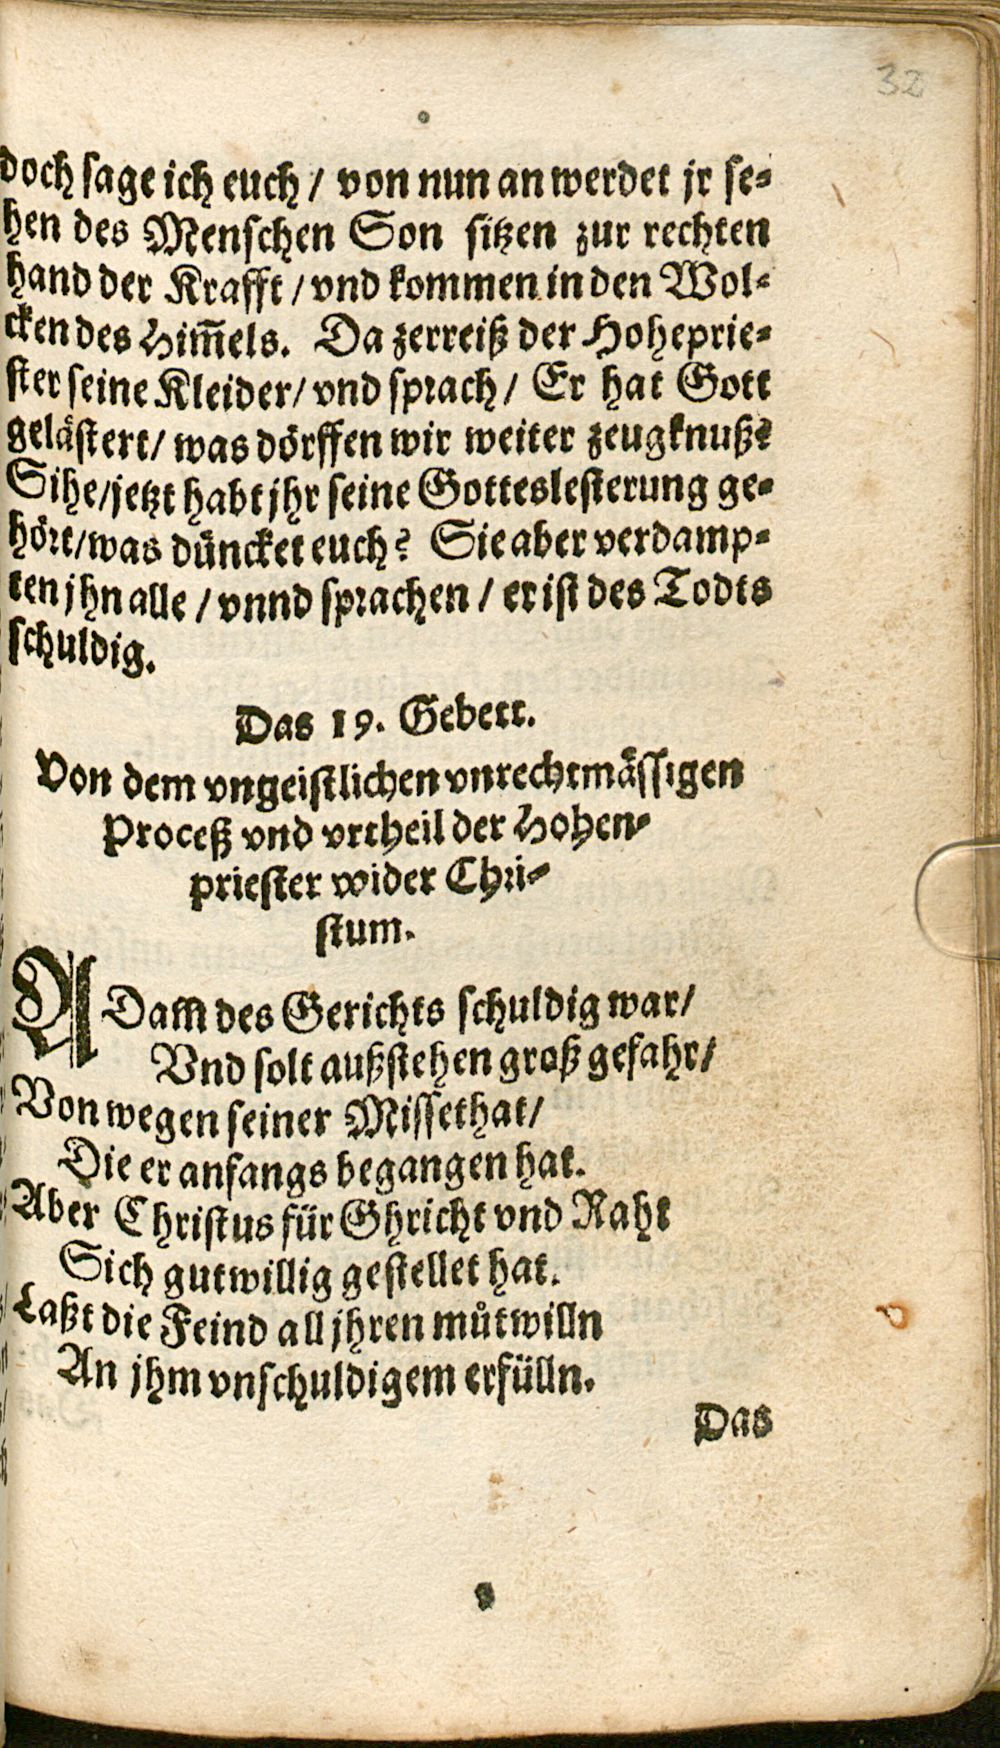 32
doch sage ich euch / von nun an werdet jr se-
hen des Menschen Son sitzen zur rechten
hand der Krafft / vnd kommen in den Wol-
cken des Him̅els. Da zerreiß der Hoheprie-
ster seine Kleider / vnd sprach / Er hat Gott
gelästert / was dörffen wir weiter zeugknuß?
Sihe / jetzt habt jhr seine Gotteslesterung ge-
hört / was düncket euch? Sie aber verdamp-
ten jhn alle / vnnd sprachen / er ist des Todts
schuldig.
Das 19. Gebett.
Von dem vngeistlichen vnrechtmässigen
Proceß vnd vrtheil der Hohen-
priester wider Chri-
stum.
ADam des Gerichts schuldig war /
Vnd solt außstehen groß gefahr /
Von wegen seiner Missethat /
Die er anfangs begangen hat.
Aber Christus für Ghricht vnd Raht
Sich gutwillig gestellet hat.
Laßt die Feind all jhren můtwilln
An jhm vnschuldigem erfülln.
Das